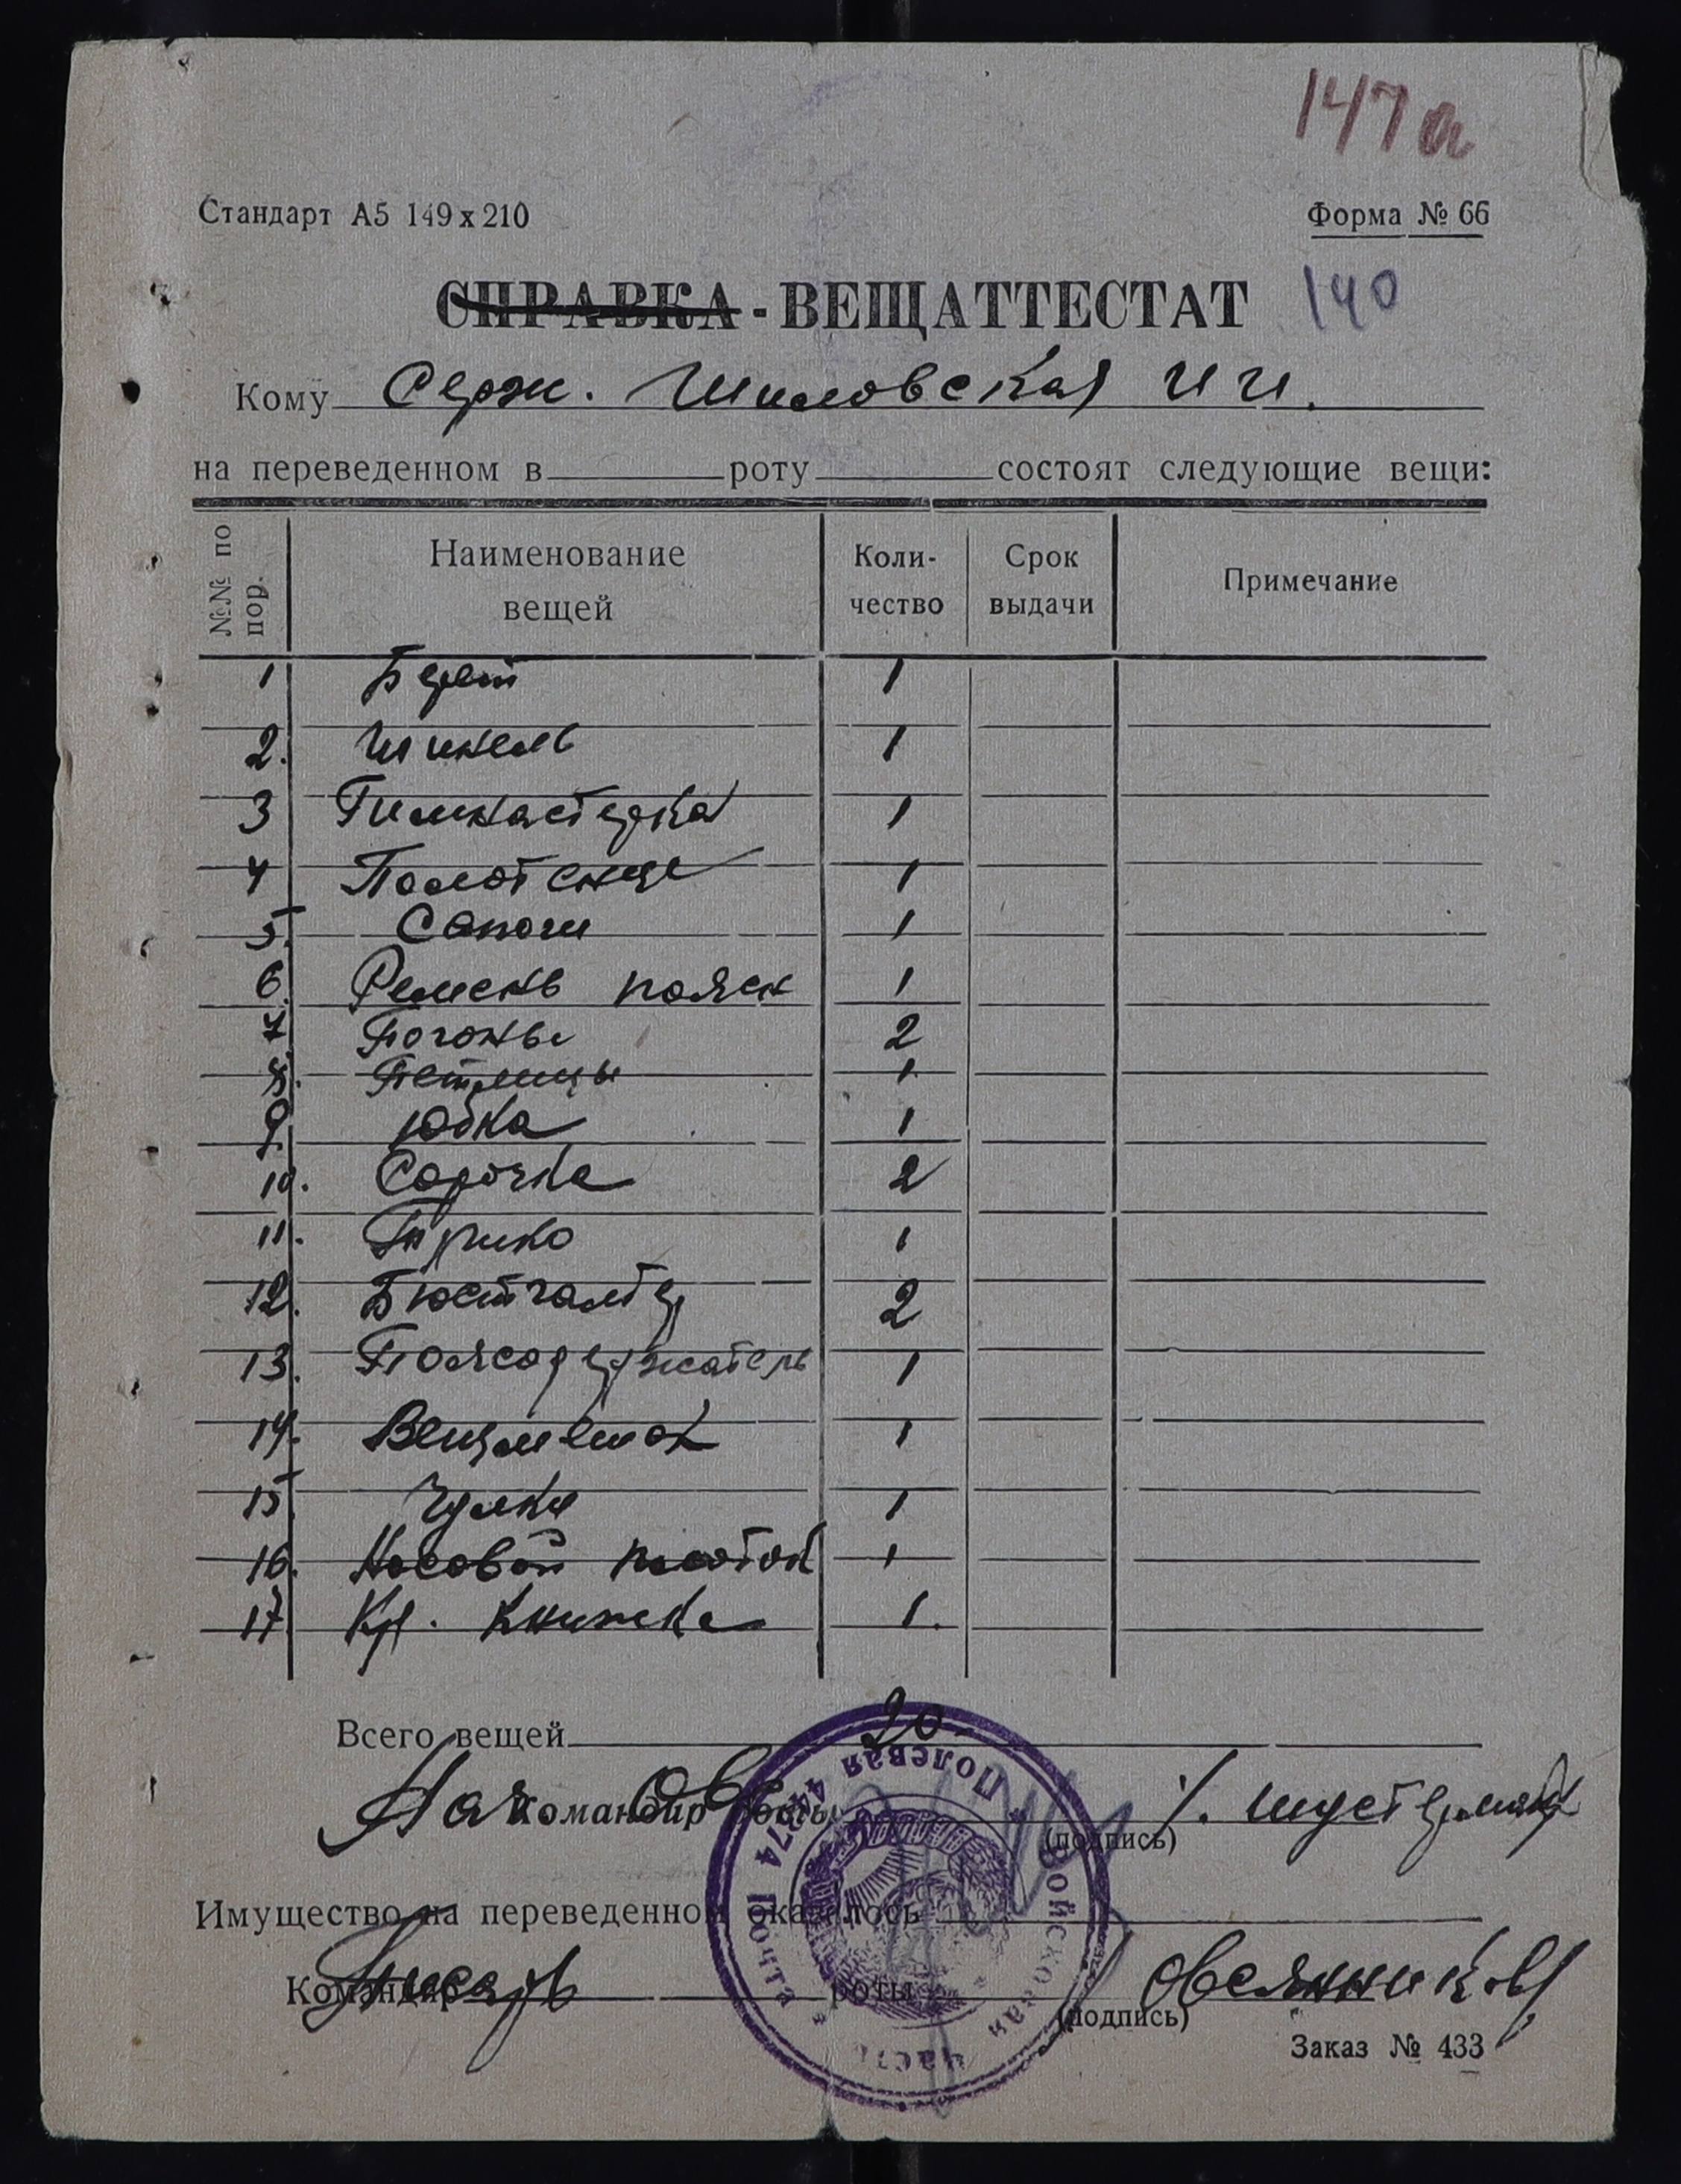 147а
Стандарт А5 149х210 Форма № 66
СПРАВКА - ВЕЩАТТЕСТАТ 140
Кому Серж. Шиловская И И.
на переведенном в роту состоят следующие вещи:
№№ по пор. Наименование вещей Коли-чество Срок выдачи Примечание
1 Берет 1
2. Шинель 1
3 Гимнастерка 1
4 Полотенце 1
5. Сапоги 1
6. Ремень поясн 1
7. Погоны 2
8. Петлицы 1
9. Юбка 1
10. Сорочка 2
11. Трико 1
12. Бюстгалтер 2
13. Поясодержатель 1
14. Вещмешок 1
15 Чулки 1
16. Носовой платок 1
17 Кр. Книжка 1.
Всего вещей 20
Нач ОВС
Командир роты
(подпись)
Имущество на переведенном оказалось
Писарь Овсянников
Командир роты
(подпись)
Заказ № 433
Войсковая часть * Полевая почта 44774 *